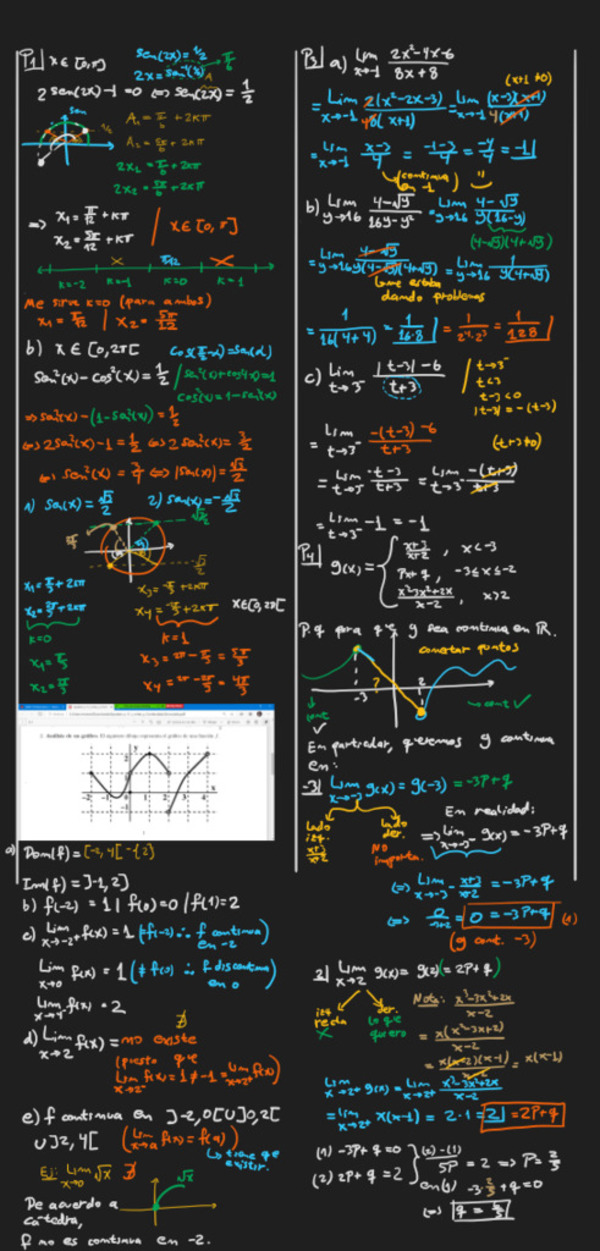 P1] x ∈ [0, π]
sen(2x) = 1/2
2x = sen⁻¹(1/2)
π/6
2 sen(2x) - 1 = 0 ⇔ sen(2x) = 1/2
sen
1/2
A₁ = π/6 + 2kπ
A₂ = 5π/6 + 2kπ
2x₁ = π/6 + 2kπ
2x₂ = 5π/6 + 2kπ
⇒ x₁ = π/12 + kπ
x₂ = 5π/12 + kπ
x ∈ [0, π]
k=-2 k=-1 k=0 k=1
Me sirve k=0 (para ambos)
x₁ = π/12 | x₂ = 5π/12
b) x ∈ [0, 2π[
cos(π/2 - α) = sen(α)
sen²(x) - cos²(x) = 1/2 / sen²(x) + cos²x = 1
cos²(x) = 1 - sen²(x)
⇒ sen²(x) - (1 - sen²(x)) = 1/2
⇔ 2sen²(x) - 1 = 1/2 ⇔ 2 sen²(x) = 3/2
⇔ sen²(x) = 3/4 ⇔ |sen(x)| = √3/2
1) sen(x) = √3/2 2) sen(x) = -√3/2
x₁ = π/3 + 2kπ
x₂ = 2π/3 + 2kπ
k=0
x₁ = π/3
x₂ = 2π/3
x₃ = -π/3 + 2kπ
x₄ = -2π/3 + 2kπ
x ∈ [0, 2π[
k=1
x₃ = 2π - π/3 = 5π/3
x₄ = 2π - 2π/3 = 4π/3
-2 -1 0 1 2 3 4 x
a) Dom(f) = [-2, 4[ - {2}
Im(f) = ]-1, 2]
b) f(-2) = 1 | f(0) = 0 / f(1) = 2
c) Lim x→-2⁺ f(x) = 1 (= f(-2) ∴ f continua en -2)
Lim x→0 f(x) = 1 (≠ f(0) ∴ f discontinua en 0)
Lim x→1 f(x) = 2
d) Lim x→2 f(x) = no existe ∄
(puesto que
Lim x→2⁻ f(x) = 1 ≠ -1 = Lim x→2⁺ f(x))
e) f continua en ]-2, 0[ U ]0, 2[
U ]2, 4[ (Lim x→a f(x) = f(a))
↳ tiene que existir.
Ej: Lim x→0 √x ∄
√x
De acuerdo a
catedra,
f no es continua en -2.
P3] a) Lim x→-1 (2x² - 4x - 6)/(8x + 8)
(x+1 ≠ 0)
= Lim x→-1 2(x² - 2x - 3)/8(x+1) = Lim x→-1 (x-3)(x+1)/4(x+1)
= Lim x→-1 (x-3)/4 = (-1-3)/4 = -4/4 = -1
(continua en -1)
b) Lim y→16 (4-√y)/(16y - y²) = Lim y→16 (4-√y)/y(16-y)
(4-√y)(4+√y)
= Lim y→16 (4-√y)/y(4-√y)(4+√y) = Lim y→16 1/y(4+√y)
dando problemas
= 1/16(4+4) = 1/16·8 = 1/2⁴·2³ = 1/128
c) Lim t→3⁻ (|t-3| - 6)/(t+3)
t→3⁻
t<3
t-3<0
|t-3| = -(t-3)
= Lim t→3⁻ (-(t-3) - 6)/(t+3) (t+3 ≠ 0)
= Lim t→3⁻ (-t-3)/(t+3) = Lim t→3⁻ -(t+3)/(t+3)
= Lim t→3⁻ -1 = -1
P4] g(x) = { (x+3)/(x-2), x < -3
Px + q, -3 ≤ x ≤ -2
(x³-3x²+2x)/(x-2), x > 2
P, q para que g sea continua en ℝ.
conectar puntos
-3 ? 2
cont ✓
↳ cont ✓
En particular, queremos g continua
en:
-3] Lim x→-3 g(x) = g(-3) = -3P + q
Lado izq. (x+3)/(x-2)
Lado der.
NO importa.
En realidad:
⇒ Lim x→-3⁻ g(x) = -3P + q
⇔ Lim x→-3⁻ (x+3)/(x-2) = -3P + q
⇔ 0/(-3-2) = 0 = -3P + q (1)
(g cont. -3)
2] Lim x→2 g(x) = g(2) (= 2P + q)
izq recta
der. lo que quiero
Nota: (x³-3x²+2x)/(x-2)
= x(x²-3x+2)/(x-2)
= x(x-2)(x-1)/(x-2) = x(x-1)
Lim x→2⁺ g(x) = Lim x→2⁺ (x³-3x²+2x)/(x-2)
= Lim x→2⁺ x(x-1) = 2·1 = 2 = 2P + q
(1) -3P + q = 0
(2) 2P + q = 2
(2)-(1) 5P = 2 ⇒ P = 2/5
en (1) -3·2/5 + q = 0
⇔ q = 6/5